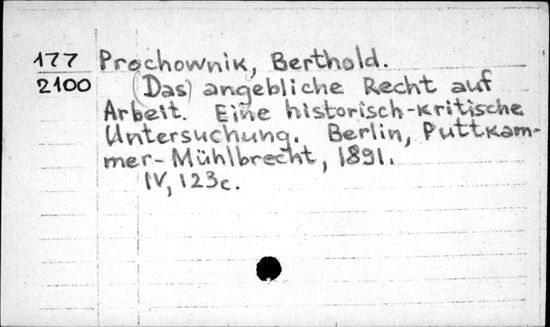 177 Prochownik, Berthold.
2100 (Das) angebliche Recht auf
Arbeit. Eine historisch-kritische
Untersuchung. Berlin, Puttkam-
mer-Mühlbrecht, 1891.
IV, 123c.